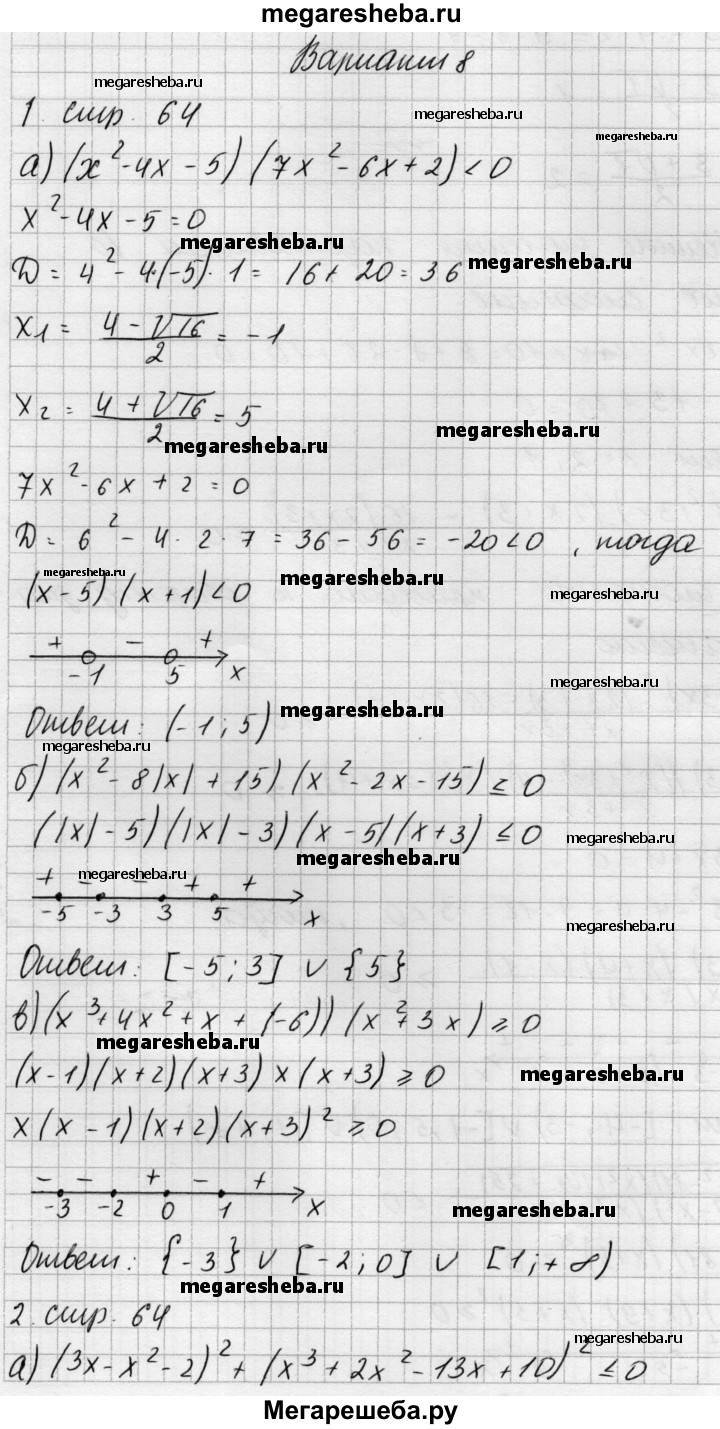 megaresheba.ru
Вариант 8
megaresheba.ru
megaresheba.ru
1. стр. 64
megaresheba.ru
а) (x²-4x-5)(7x²-6x+2)<0
x²-4x-5=0
megaresheba.ru
megaresheba.ru
D = 4² - 4·(-5)·1 = 16+20=36
x₁ = (4-√16)/2 = -1
x₂ = (4+√16)/2 = 5
megaresheba.ru
megaresheba.ru
7x²-6x+2=0
D = 6² - 4·2·7 = 36-56 = -20<0, тогда
megaresheba.ru
megaresheba.ru
megaresheba.ru
(x-5)(x+1)<0
+ - +
-1 5 x
megaresheba.ru
Ответ: (-1; 5)
megaresheba.ru
megaresheba.ru
б) (x²-8|x|+15)(x²-2x-15)≤0
(|x|-5)(|x|-3)(x-5)(x+3)≤0
megaresheba.ru
megaresheba.ru
megaresheba.ru
+ - - + +
-5 -3 3 5 x
megaresheba.ru
Ответ: [-5; 3] ∨ {5}
в) (x³+4x²+x+(-6))(x²+3x)≥0
megaresheba.ru
(x-1)(x+2)(x+3)x(x+3)≥0
megaresheba.ru
x(x-1)(x+2)(x+3)²≥0
- - + - +
-3 -2 0 1 x
megaresheba.ru
Ответ: {-3} ∨ [-2; 0] ∨ [1; +∞)
megaresheba.ru
2. стр. 64
megaresheba.ru
а) (3x-x²-2)²+(x³+2x²-13x+10)²≤0
Мегарешеба.ру